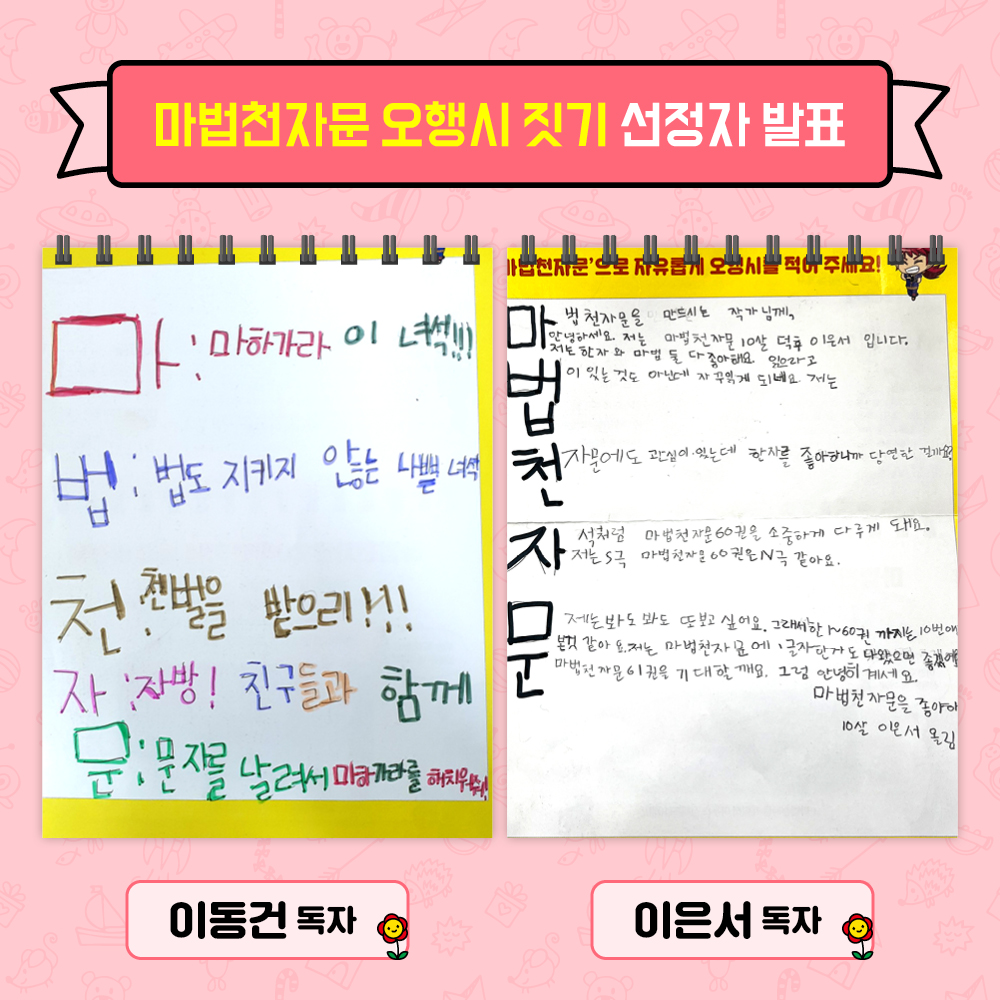 마법천자문 오행시 짓기 선정자 발표
마 : 마하가라 이 녀석!!!
법 : 법도 지키지 않는 나쁜 녀석
천 : 천벌을 받으리!!!
자 : 자방! 친구들과 함께
문 : 문자를 날려서 마하가라를 해치워줘!
이동건 독자
마법천자문'으로 자유롭게 오행시를 적어 주세요!
마 법천자문을 만드시는 작가님께,
안녕하세요. 저는 마법천자문 10살 덕후 이은서 입니다.
저는 한자와 마법 둘 다 좋아해요. 읽으라고
법 이 있는 것도 아닌데 자꾸 읽게 되네요. 저는
천 자문에도 관심이 있는데 한자를 좋아하니까 당연한 걸까요?
자 석처럼 마법천자문60권을 소중하게 다루게 돼요.
저는 S극 마법천자문 60권은 N극 같아요.
문 제는 봐도 봐도 또 보고 싶어요. 그래서 한 1~60권 까지는 10번에
본 것 같아요. 저는 마법천자문에 1글자 단거도 나왔으면 좋겠어요
마법천자문 61권을 기대할깨요. 그럼 안녕히 계세요.
마법천자문을 좋아하
10살 이은서 올림
이은서 독자